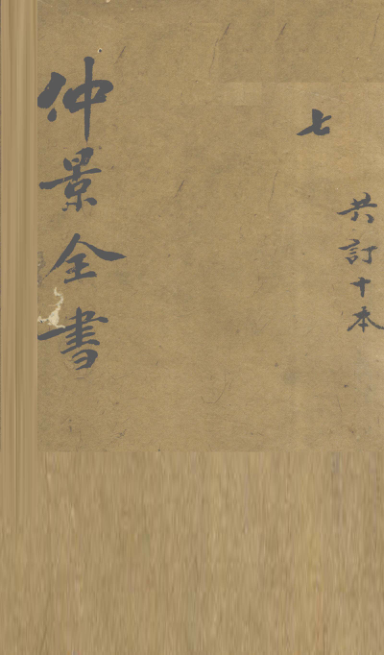 共訂十本
七
仲景全書